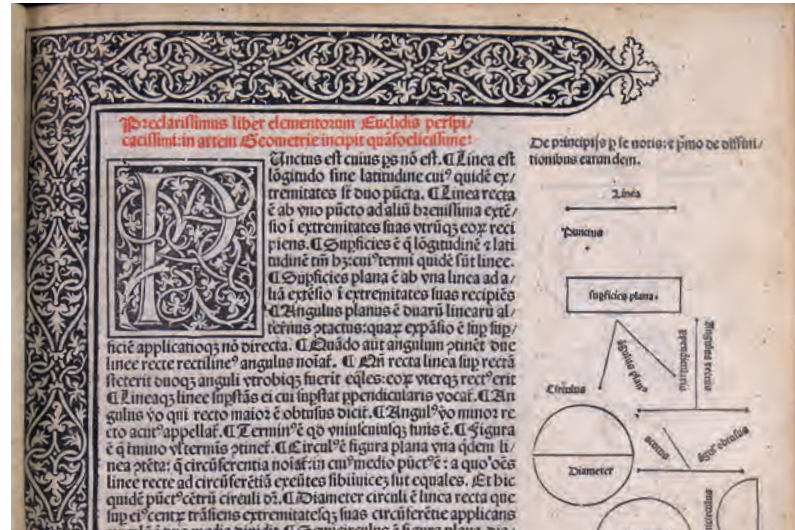 Preclarissimus liber elementorum Euclidis perspi/
cacissimi: in artem Geometrie incipit quãfoelicissime:
PUnctus est cuius ps nõ est. ¶ Linea est
lõgitudo sine latitudine cuiꝰ quidẽ ex/
tremitates st duo pũcta. ¶ Linea recta
ẽ ab vno pũcto ad aliũ breuissima extẽ/
sio ĩ extremitates suas vtrũqꝫ eoꝝ reci
piens. ¶ Supficies ẽ q̃ lõgitudinẽ ⁊ lati
tudinẽ tm̃ hꝫ: cuiꝰ termi quidẽ sũt linee.
¶ Supficies plana ẽ ab vna linea ad a/
liã extẽsio ĩ extremitates suas recipiẽs
¶ Angulus planus ẽ duarũ linearũ al/
ternus ꝯtactus: quaꝝ expãsio ẽ sup sup/
ficiẽ applicatioqꝫ nõ directa. ¶ Quãdo aut angulum ꝯtinẽt due
linee recte rectilineꝰ angulus noiat̃. ¶ Qñ recta linea sup rectã
steterit duoqꝫ anguli vtrobiqꝫ fuerit eq̃les: eoꝝ vterqꝫ rectꝰ erit
¶ Lineaqꝫ linee supstãs ei cui supstat ppendicularis vocat̃. ¶ An
gulus vo qui recto maior ẽ obtusus dicit̃. ¶ Angulꝰ vo minor re
cto acutꝰ appellat̃. ¶ Terminꝰ ẽ qd vniuscuiusqꝫ finis ẽ. ¶ Figura
ẽ q̃ tmino vl terminis ꝯtinet̃. ¶ Circulꝰ ẽ figura plana vna qdem li/
nea ꝯtẽta: q̃ circũferentia noiat̃: in cuiꝰ medio pũctꝰ ẽ: a quo oẽs
linee recte ad circũferẽtiã exeũtes sibiinuicẽ sut equales. Et hic
quidẽ pũctꝰ cẽtrũ circuli dr̃. ¶ Diameter circuli ẽ linea recta que
sup eiꝰ centꝝ trãsiens extremitatesqꝫ suas circũferẽtie applicans
De principijs p se notis: ⁊ pmo de diffini/
tionibus earandem.
Linea
Punctus
supficies plana.
ãgulus planꝰ
ppendicularis
Angulus rectus
Circulus
acutus
ãgulꝰ obtusus
Diameter